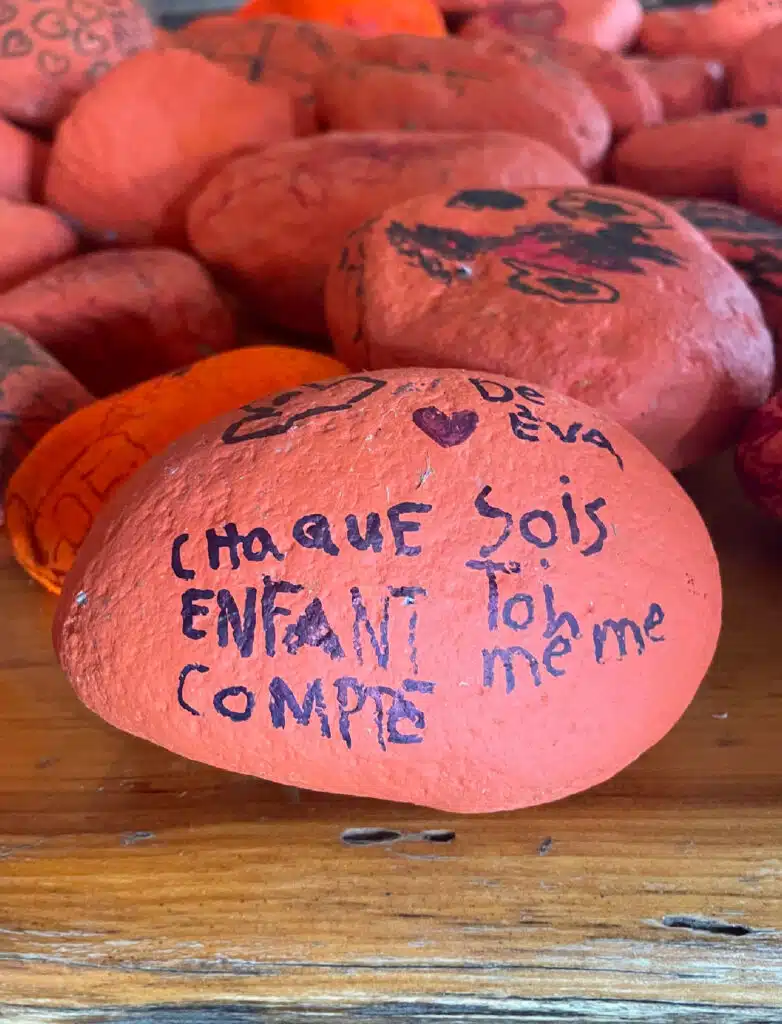 De
Èva
CHaQuE
ENFANT
COMPTE
Sois
Toi
même